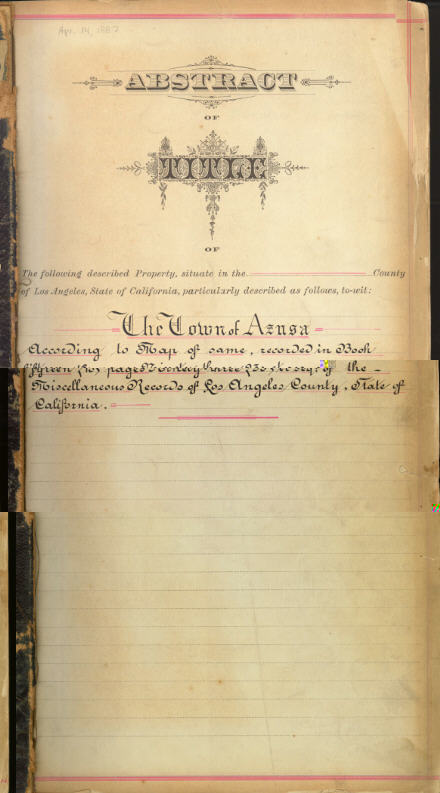 Apr. 14, 1887
ABSTRACT
OF
TITLE
OF
The following described Property, situate in the County
of Los Angeles, State of California, particularly described as follows, to-wit:
The Town of Azusa
According to Map of same, recorded in Book
pages of the
Miscellaneous Records of Los Angeles County, State of
California.